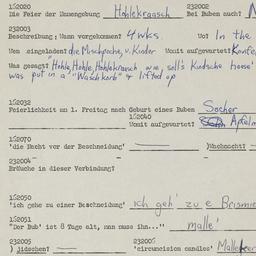 1S2020 232002
Die Feier der Namengebung Hohlekraasch Bei Buben auch? N
232003
Beschreibung; Wann vorgekommen? 4 wks. Wo? In the
Wen eingeladen? die Mischpoche, u. Kinder Womit aufgewartet? Konfe
Was gesagt? "Hohle, Hohle, Hohlekraasch wie soll's Kindsche heese"
was put in a "Waschkorb" & lifted up
1S2032
Feierlichkeit am 1. Freitag nach Geburt eines Buben Socher
1S2040
Womit aufgewartet? Apfelm
1S2070
'die Nacht vor der Beschneidung' )Wachnacht? —
232004
Bräuche in dieser Verbindung?
1S2050
'ich gehe zu einer Beschneidung' ich geh' zu e Brismi
1S2051
"Der Bub' ist 8 Tage alt, nun muss ihn..." 'malle'
232005 232006
) jüdschen? — 'circumcision candles'